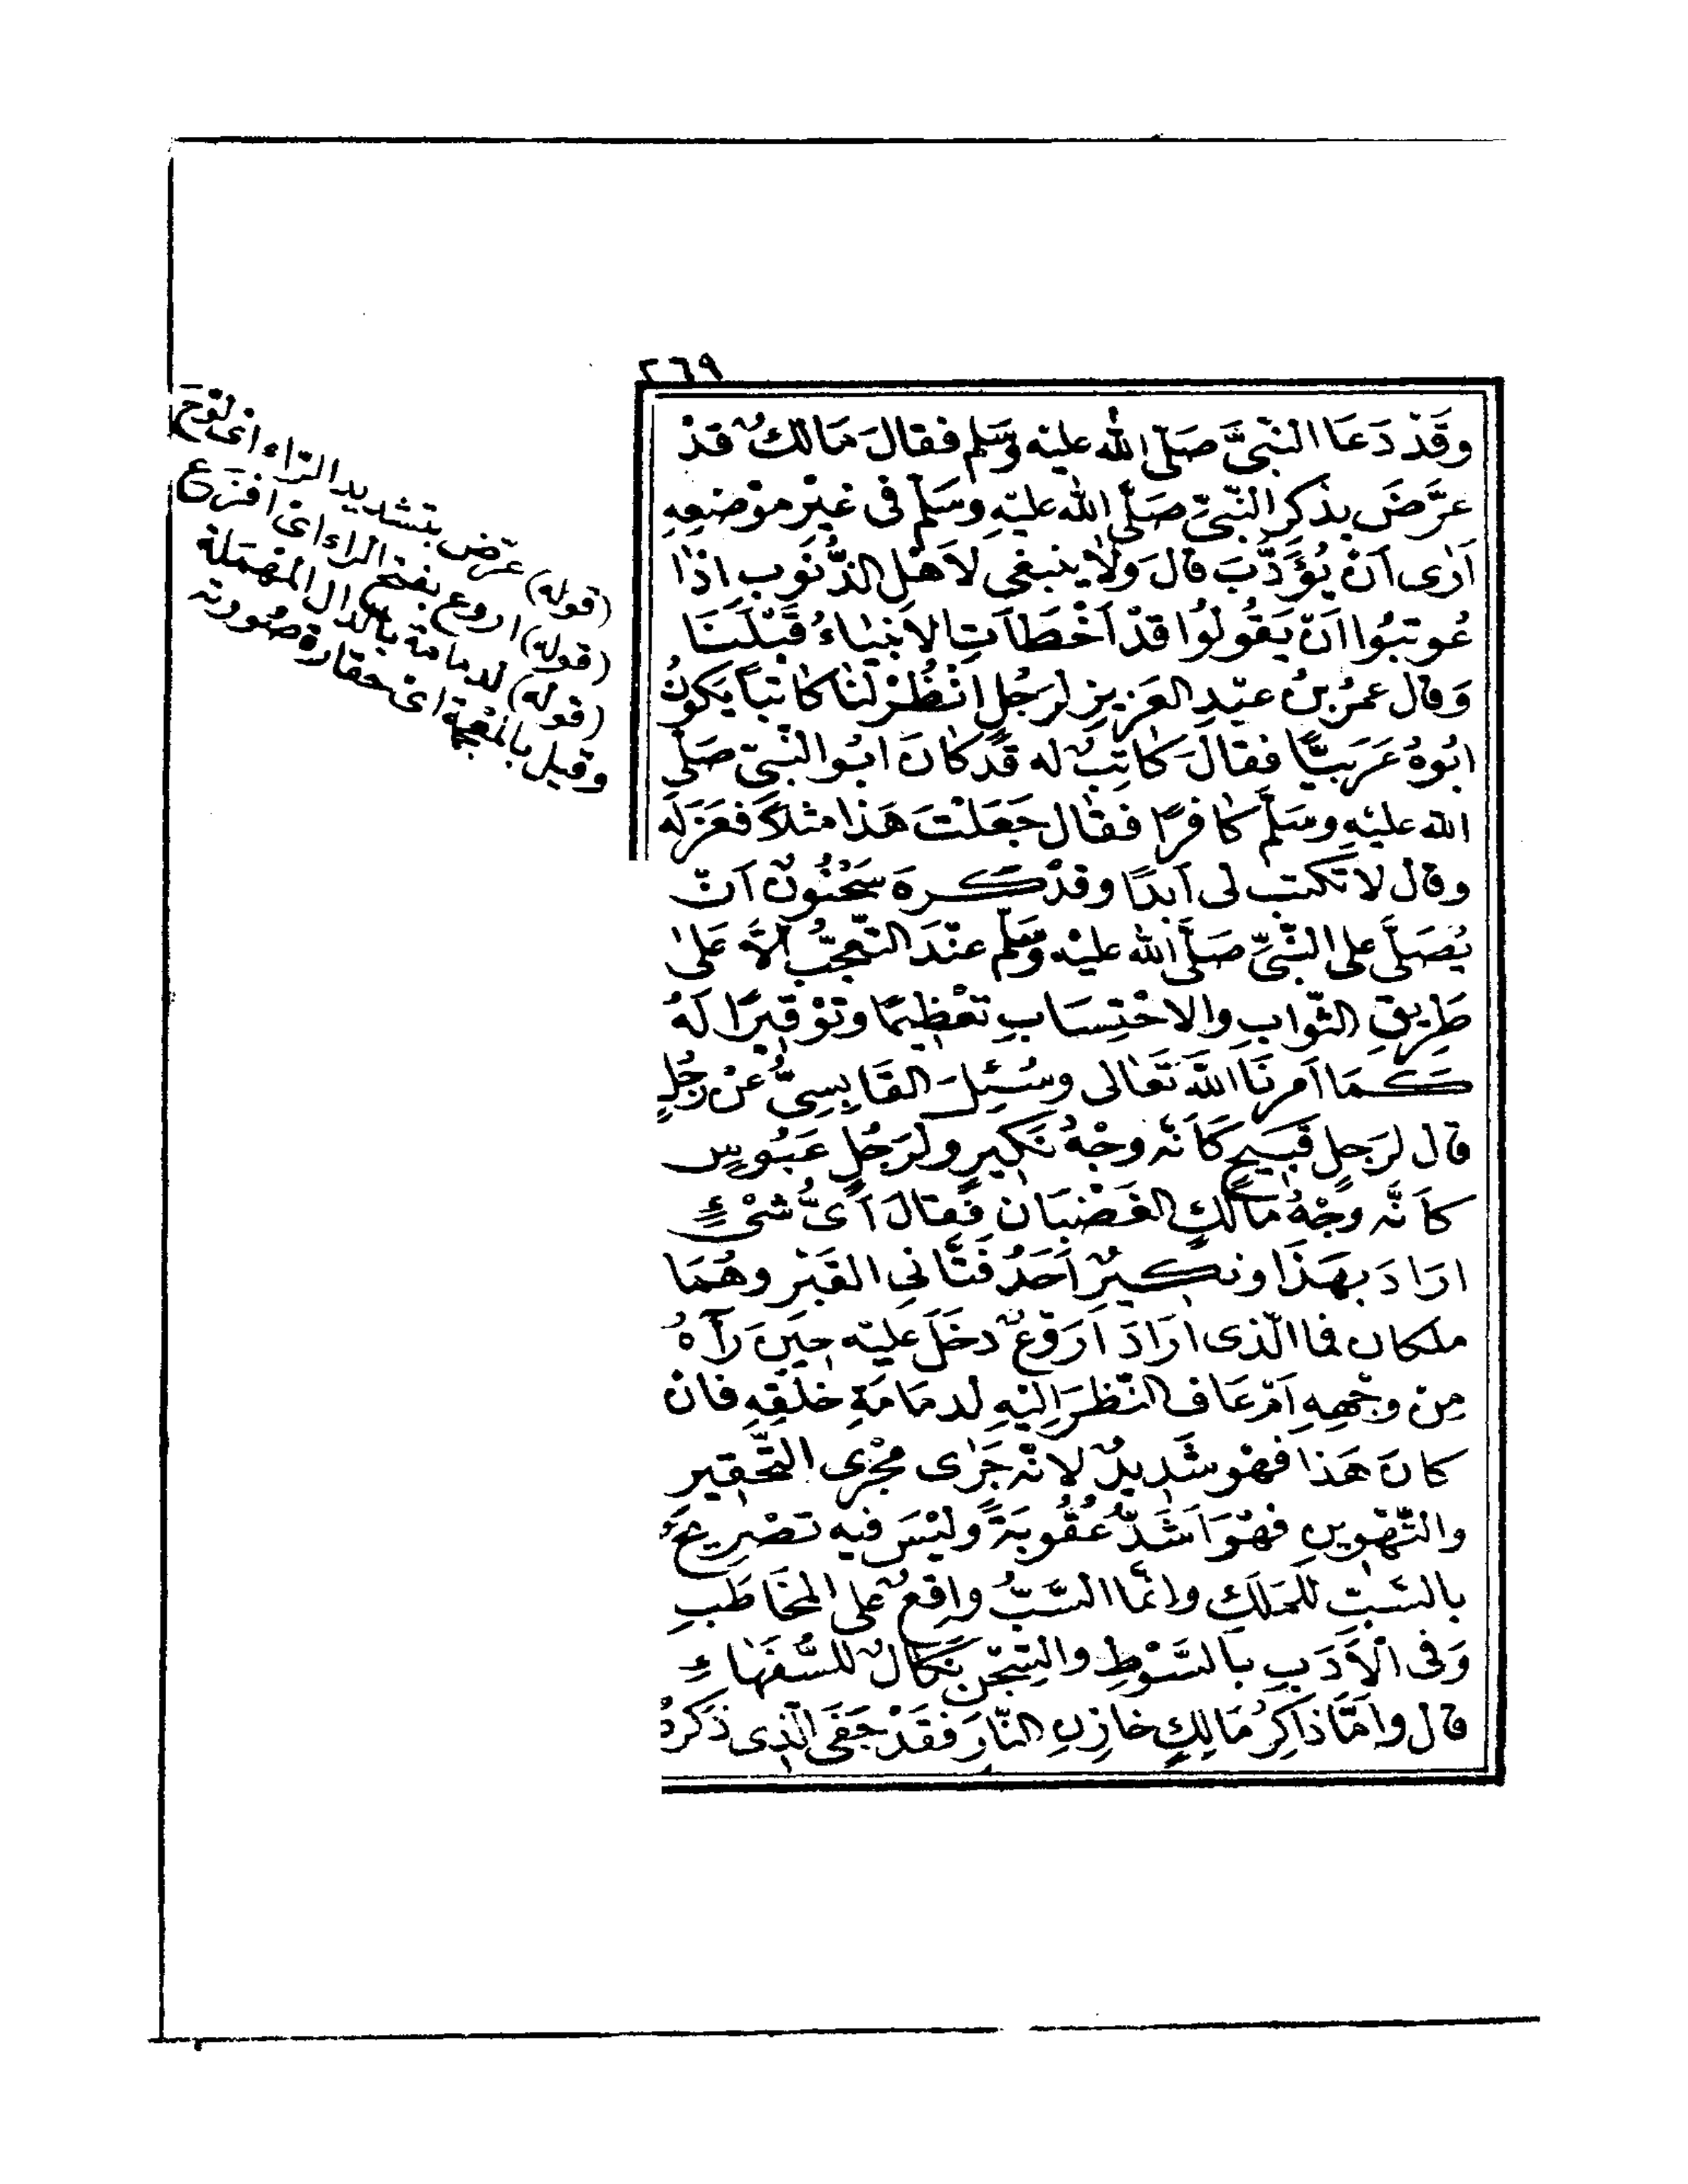 ٢٦٩
وَقَدْ دَعَا النَّبِىَّ صَلَّى الله عليْه وَسَلم فقالَ مَالكٌ قدْ
عَرَّضَ بِذكرِ النَّبِىِّ صَلَّى الله عليْهِ وسَلَّمَ فى غيْرِ موْضِعِهِ
اَرٰى اَنْ يُؤَدَّبَ قالَ وَلَا ينبغى لاَهْلِ الذُّنوُبِ اِذٰا
عُوتبُوا اَنْ يَقُولُوا قدْ اَخْطَاَتِ الاَنبيٰاءُ قَبْلَنَا
وَقال عمَرُ بنُ عبْدِ العَزيزِ لرَجُلٍ انْظُرْ لنَا كاتباً يَكونُ
ابُوهُ عَرَبيًّا فقالَ كاتِبٌ له قدْ كانَ ابُو النَّبىِّ صَلّٰى
الله عليْهِ وسَلَّم كافرًا فقال جَعَلْتَ هَذا مثلاً فعَزَلَهُ
وقال لا تَكتبْ لى اَبدًا وقدْ كَرِهَ سَحْنُونٌ اَنْ
يُصَلَّى على النَّبىِّ صَلَّى الله عليْه وَسَلّم عنْدَ التّعجُّبِ اِلاَّ عَلىٰ
طَرِيقِ الثّوابِ والاحْتِسَابِ تعْظِيمًا وتوْقيرًا لَهُ
كَمَا اَمرنَا اللّهُ تَعَالى وسُئِلَ القَابِسِىُّ عنْ رجُلٍ
قال لرَجلٍ قَبيحٍ كَاَنّه وجْهُ نَكيرٍ ولرَجُلٍ عَبُوسٍ
كاَنَّه وجْهُ مَالكٍ الغَضْبَان فقالَ اَىُّ شَىْءٍ
ارَادَ بهَذَا ونكيرٌ اَحَدُ فَتَّانىِ القَبْرِ وهُمَا
ملكان فما الّذى ارَادَ اَرَوْعٌ دخَلَ عليْه حِينَ رَآهُ
مِن وجْهِهِ اَمْ عَاف النّظرَ اِليْهِ لدمَامَةِ خلْقِهِ فان
كانَ هَذا فهْو شَدِيدٌ لانّه جَرٰى مجْرٰى التّحْقِيرِ
والتّهْوِينِ فهْوَ اَشَدُّ عُقُوبَةً وليْسَ فيه تصْرِيحٌ
بالسَّبِّ للمَلَكِ وانّما السَّبُّ واقعٌ على المخَاطَبِ
وَفى الْاَدَبِ بالسَّوْطِ والسِّجْنِ نَكَالٌ للسُّفَهَاءِ
قال وامَّا ذاكِرُ مَالِكٍ خازِنِ النّارِ فقَدْ جَفَى الّذِى ذكَرهُ
(قوله) عرّض بتشديد الرّاء اى لوّح
(قوله) اروع بفتح الراء اى افزع
(قوله) لدمامة بالدال المهْمَلة
وقيل بالمعْجمة اى حقارة صُورته